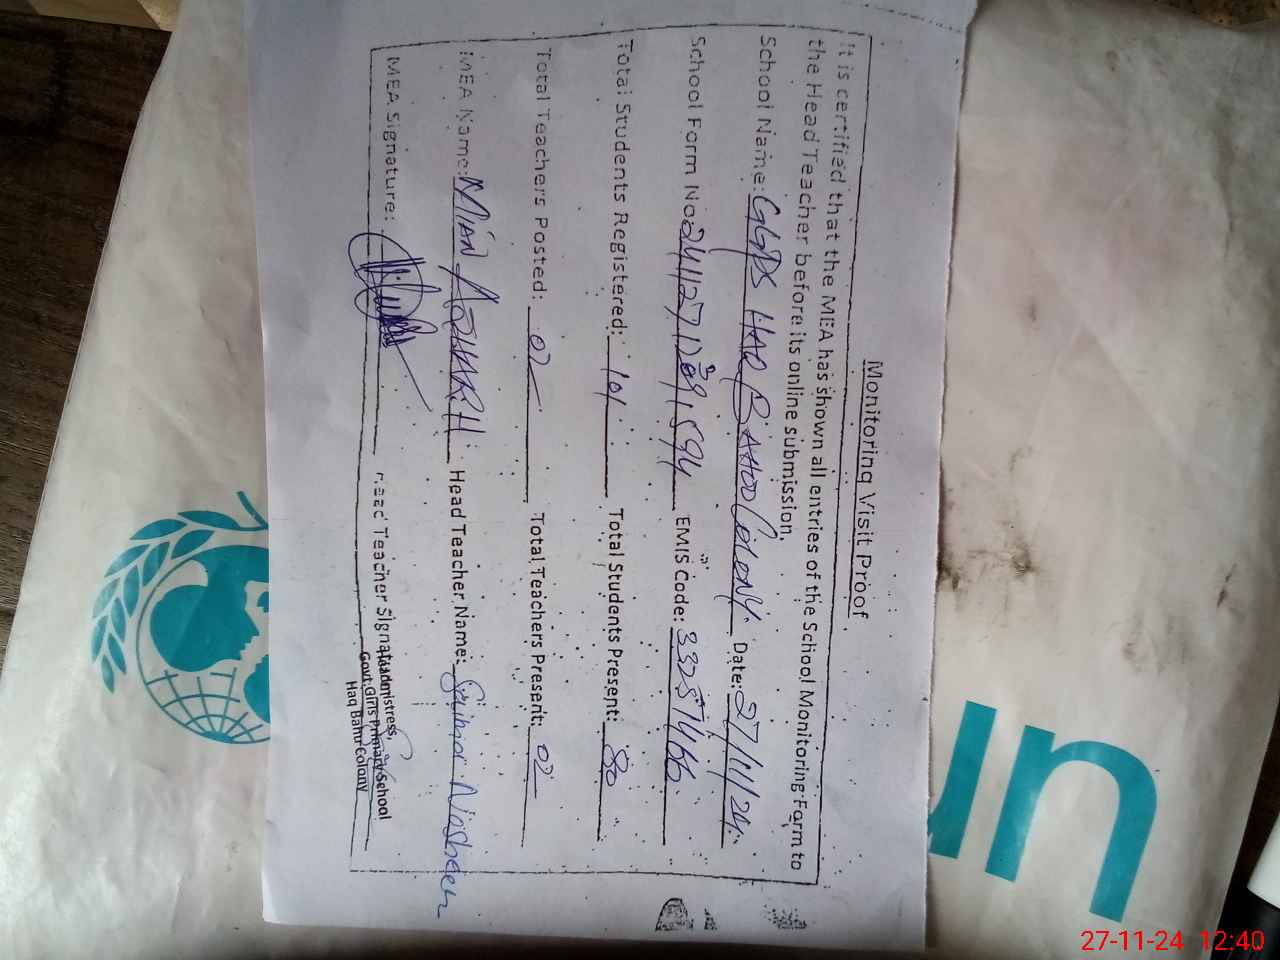 Monitoring Visit Proof
It is certified that the MEA has shown all entries of the School Monitoring Form to
the Head Teacher before its online submission.
School Name: GGPS HAQ BAHOO COLONY. Date: 27/11/24.
School Form No: EMIS Code:
Total Students Registered: 101 Total Students Present: 80
Total Teachers Posted: 02 Total Teachers Present: 02
MEA Name: MIAN Head Teacher Name:
MEA Signature: Head Teacher Signature:
Headmistress,
Govt: Girls Primary School
Haq Bahu Colony
un
27-11-24 12:40